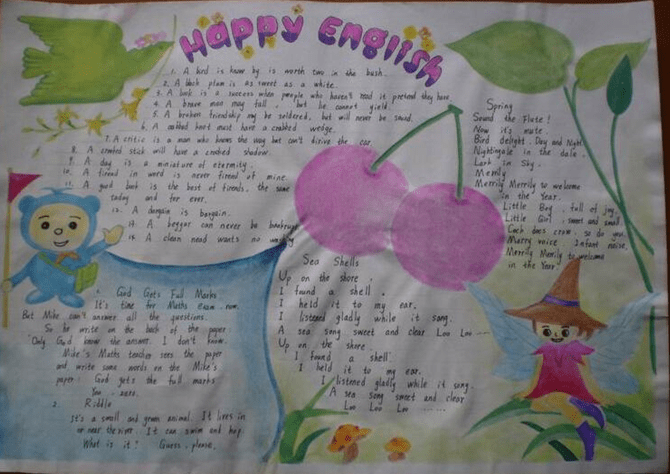 Happy English
1. A bird is know by is worth two in the bush.
2. A black plum is as sweet as a white.
3. A book is a success when people who haven't read it pretend they have.
4. A brave man may fall, but he cannot yield.
5. A broken friendship may be soldered, but will never be sound.
6. A crabbed knot must have a crabbed wedge.
7. A critic is a man who knows the way but can't drive the car.
8. A crooked stick will have a crooked shadow.
9. A day is a miniature of eternity.
10. A friend in word is never friend of mine.
11. A good book is the best of friends, the same
today and for ever.
12. A bargain is bargain.
13. A beggar can never be bankrupt
14. A clean hand wants no washing
Spring
Sound the Flute!
Now it's mute.
Bird delight. Day and Night
Nightingale in the dale.
Lark in Sky.
Merrily
Merrily Merrily to welcome
in the Year.
Little Boy, full of joy.
Little Girl, sweet and small
Cock does crow, so do you.
Merry voice. Infant noise.
Merrily Merrily to welcome
in the Year.
Sea Shells
Up on the shore.
I found a shell.
I held it to my ear.
I listened gladly while it song.
A sea song sweet and clear Loo Loo
Up on the shore.
I found a shell.
I held it to my ear.
I listened gladly while it song.
A sea song sweet and clear
Loo Loo Loo ......
God Gets Full Marks
It's time for Maths exam now.
But Mike can't answer all the questions.
So he write on the back of the paper
"Only God know the answer. I don't know.
Mike's Maths teacher sees the paper
and write some words on the Mike's
paper: God gets the full marks.
You, zero.
2 Riddle
It's a small and green animal. It lives in
or near the river. It can swim and hop.
What is it? Guess, please.